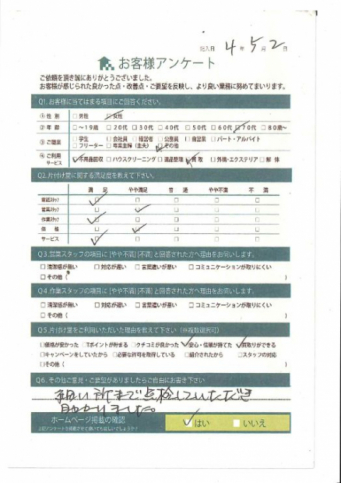 記入日 4年5月2日
お客様アンケート
ご依頼を頂き誠にありがとうございました。
お客様が感じられた良かった点・改善点・ご要望を反映し、より良い業務に努めてまいります。
Q1.お客様に当てはまる項目にご回答ください。
①性別 □男性 □女性
②年齢 □~19歳 □20代 □30代 □40代 □50代 □60代 □70代 □80歳~
③ご職業 □学生 □会社員 □経営者 □公務員 □自営業 □パート・アルバイト
□フリーター □専業主婦(主夫) □その他
④ご利用サービス □不用品回収 □ハウスクリーニング □遺品整理 □買取 □外構・エクステリア □解体
Q2.片付け堂に関する満足度を教えて下さい。
満足 やや満足 普通 やや不満 不満
電話スタッフ □ □ □ □
営業スタッフ □ □ □ □
作業スタッフ □ □ □ □
価格 □ □ □ □
サービス □ □ □ □
Q3.営業スタッフの項目に[やや不満][不満]と回答された方へ理由をお伺いします。
□清潔感が無い □対応が遅い □言葉遣いが悪い □コミュニケーションが取りにくい
□その他( )
Q4.作業スタッフの項目に[やや不満][不満]と回答された方へ理由をお伺いします。
□清潔感が無い □対応が遅い □言葉遣いが悪い □コミュニケーションが取りにくい
□その他( )
Q5.片付け堂をご利用いただいた理由を教えて下さい(※複数選択可)
□価格が安かった □Tポイントが貯まる □クチコミが良かった □安心・信頼が持てた □買取りができる
□キャンペーンをしていたから □必要な許可を取得している □紹介されたから □スタッフの対応
□その他( )
Q6.その他ご意見・ご要望がありましたらご自由にお書き下さい
細い所まで点検していただき
助かりました。
ホームページ掲載の確認
はい
いいえ